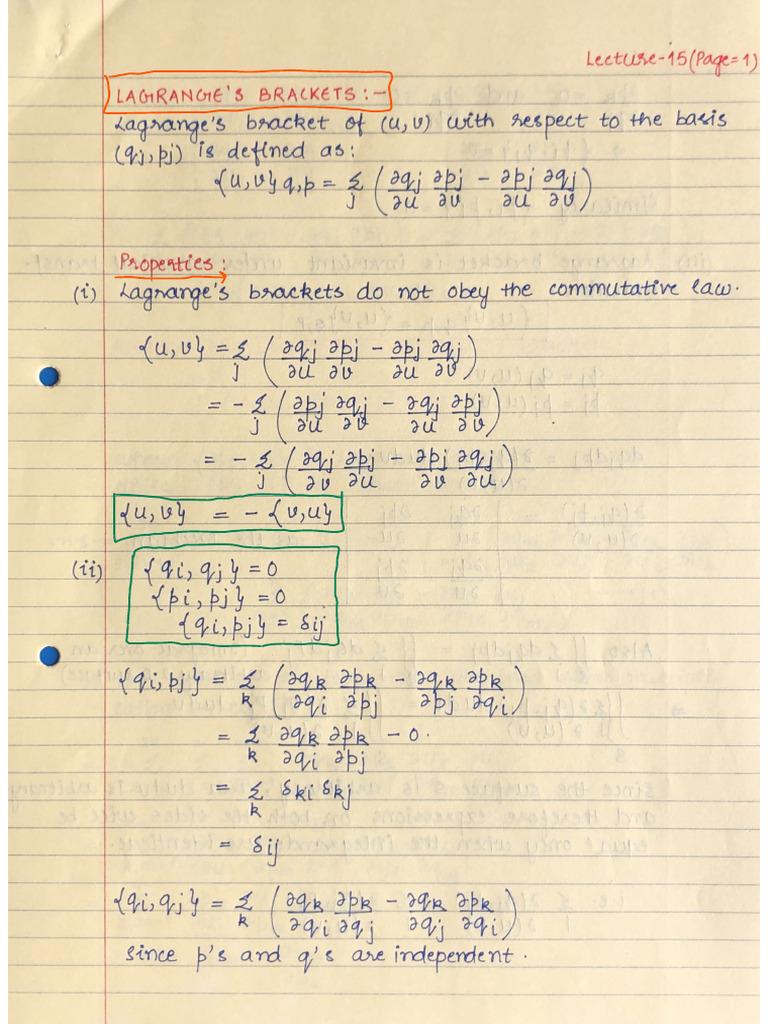 Lecture-15(Page=1)
LAGRANGE'S BRACKETS:-
Lagrange's bracket of (u,v) with respect to the basis
(qj,pj) is defined as:
{u,v}q,p = Σ_j (∂qj/∂u ∂pj/∂v - ∂pj/∂u ∂qj/∂v)
Properties:
(i) Lagrange's brackets do not obey the commutative law.
{u,v} = Σ_j (∂qj/∂u ∂pj/∂v - ∂pj/∂u ∂qj/∂v)
= - Σ_j (∂pj/∂u ∂qj/∂v - ∂qj/∂u ∂pj/∂v)
= - Σ_j (∂qj/∂v ∂pj/∂u - ∂pj/∂v ∂qj/∂u)
{u,v} = - {v,u}
(ii) {qi, qj} = 0
{pi, pj} = 0
{qi, pj} = δij
{qi, pj} = Σ_k (∂qk/∂qi ∂pk/∂pj - ∂qk/∂pj ∂pk/∂qi)
= Σ_k ∂qk/∂qi ∂pk/∂pj - 0.
= Σ_k δki δkj
= δij
{qi, qj} = Σ_k (∂qk/∂qi ∂pk/∂qj - ∂qk/∂qj ∂pk/∂qi)
since p's and q's are independent.